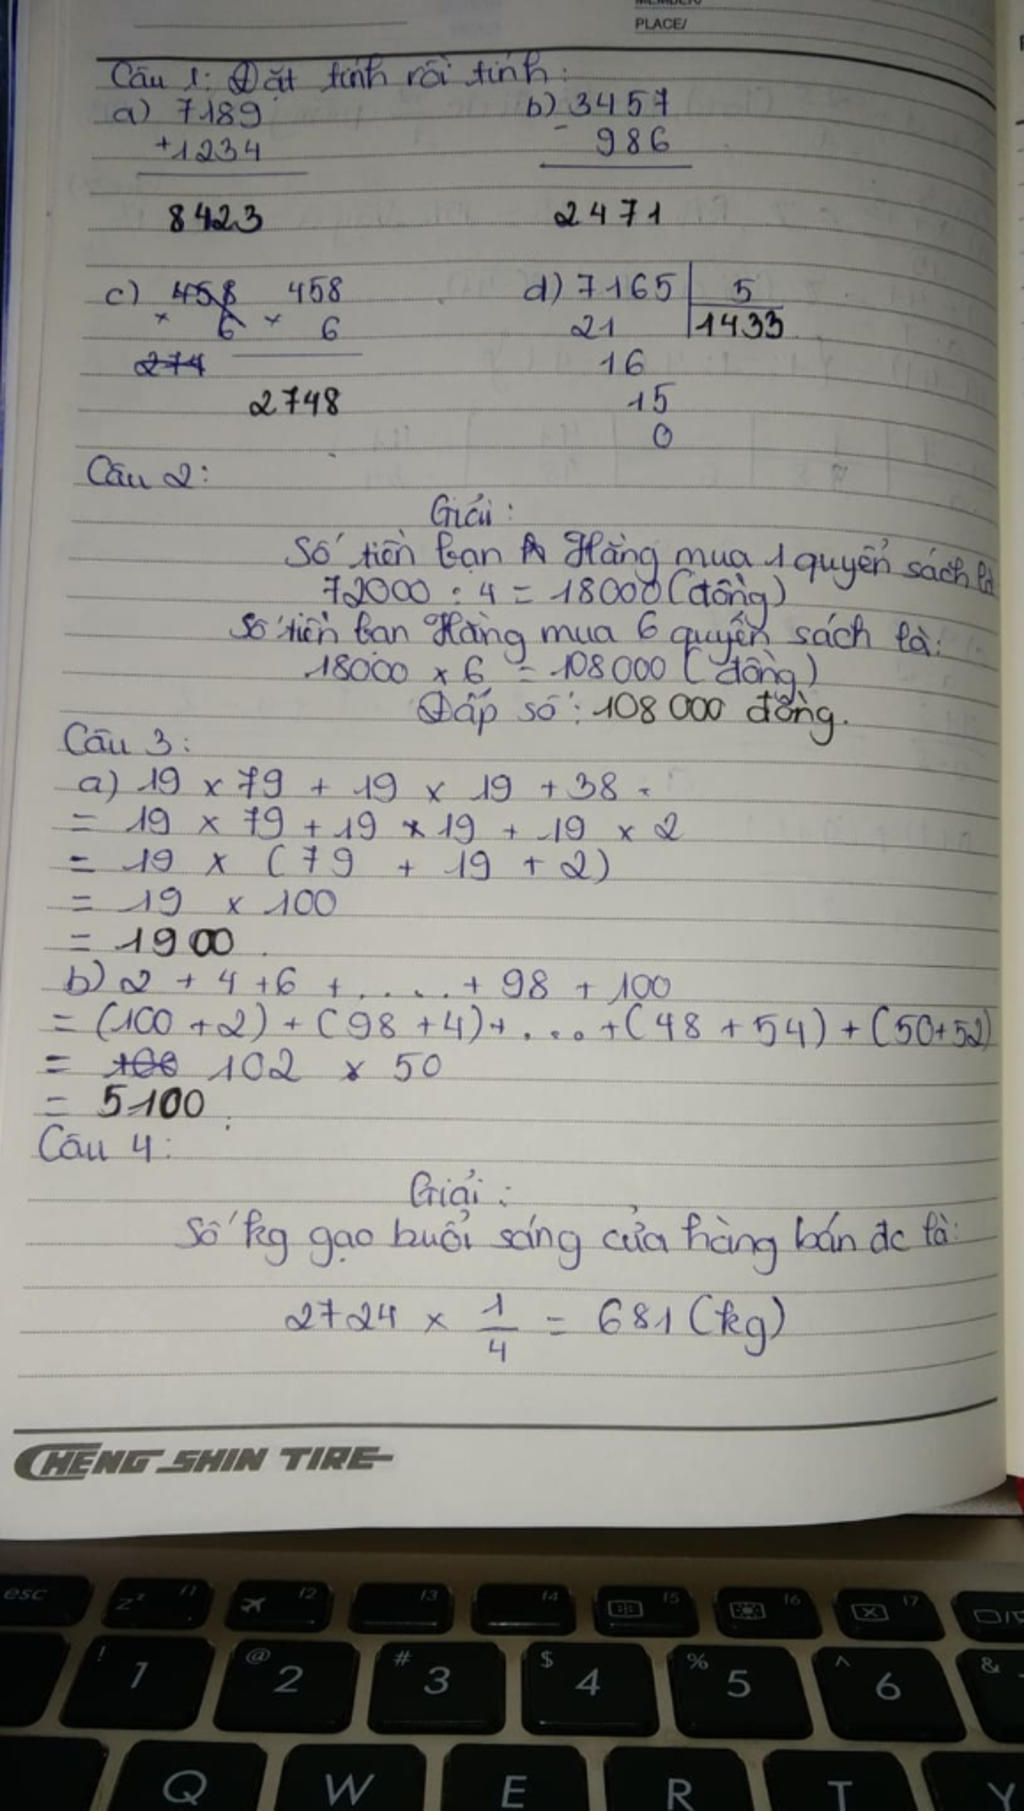 PLACE/
Câu 1: Đặt tính rồi tính:
a) 7189 b) 3457
+1234 - 986
8423 2471
c) 458 458 d) 7165 5
× 6 × 6 21 1433
274 16
2748 15
0
Câu 2:
Giải:
Số tiền bạn Hằng mua 1 quyển sách là
72000 : 4 = 18000 (đồng)
Số tiền bạn Hằng mua 6 quyển sách là:
18000 × 6 = 108000 (đồng)
Đấp số: 108 000 đồng.
Câu 3:
a) 19 × 79 + 19 × 19 + 38
= 19 × 79 + 19 × 19 + 19 × 2
= 19 × (79 + 19 + 2)
= 19 × 100
= 1900.
b) 2 + 4 + 6 + ..... + 98 + 100
= (100 + 2) + (98 + 4) + .... + (48 + 54) + (50+52)
= 100 102 × 50
= 5100
Câu 4:
Giải:
Số kg gạo buổi sáng cửa hàng bán đc là:
2724 × 1/4 = 681 (kg)
CHENG SHIN TIRE
esc zᶻ f1 f2 f3 f4 f5 f6 f7
! 1 @ 2 # 3 $ 4 % 5 ^ 6 &
Q W E R T Y